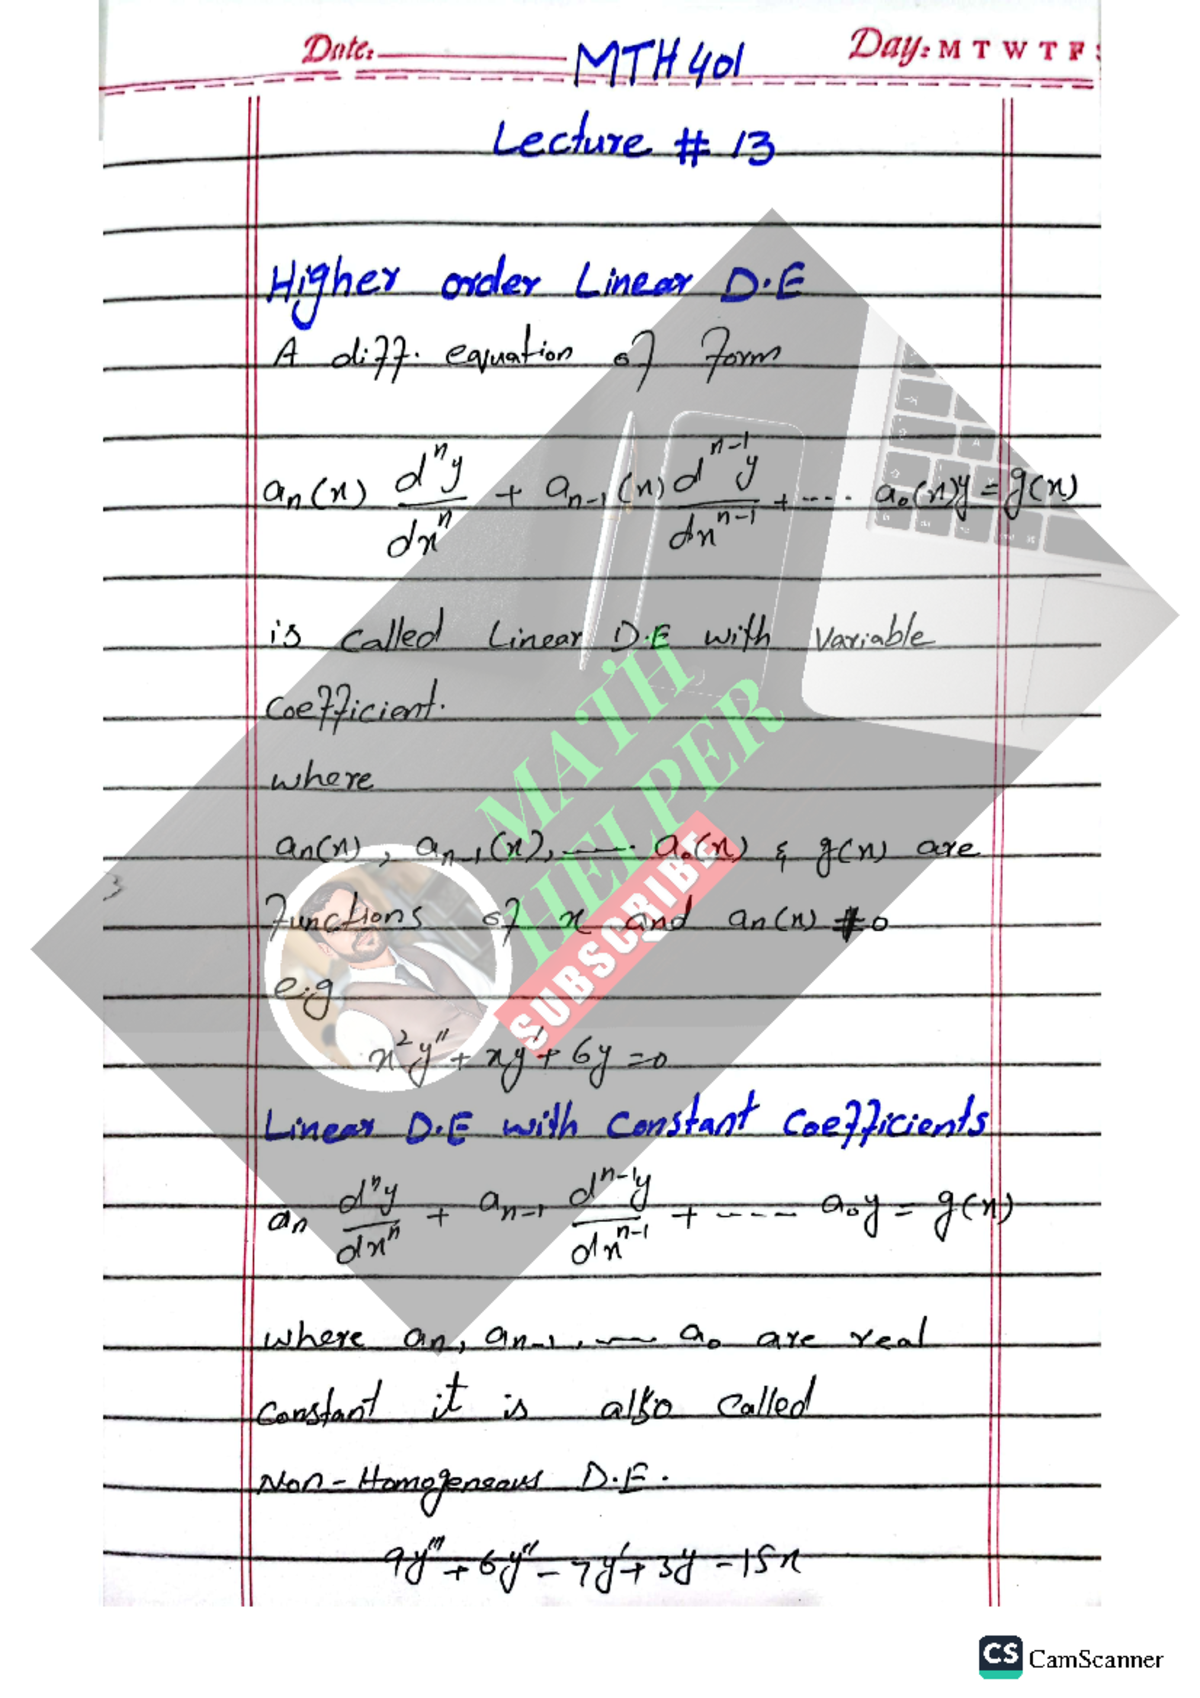 Date: MTH 401 Day: M T W T F S
Lecture # 13
Higher order Linear D.E
A diff. equation of form
aₙ(x) dⁿy/dxⁿ + aₙ₋₁(x) dⁿ⁻¹y/dxⁿ⁻¹ + ---- a₀(x)y = g(x)
is called Linear D.E with Variable
Coefficient.
where
aₙ(x), aₙ₋₁(x), ---- a₀(x) & g(x) are
functions of x and aₙ(x) ≠ 0
e.g
x²y'' + xy' + 6y = 0
Linear D.E with Constant Coefficients
aₙ dⁿy/dxⁿ + aₙ₋₁ dⁿ⁻¹y/dxⁿ⁻¹ + ---- a₀y = g(x)
where aₙ, aₙ₋₁, --- a₀ are real
Constant it is also called
Non-Homogeneous D.E.
9y''' + 6y'' - 7y' + 3y = 15x
MATH
HELPER
SUBSCRIBE
CS CamScanner